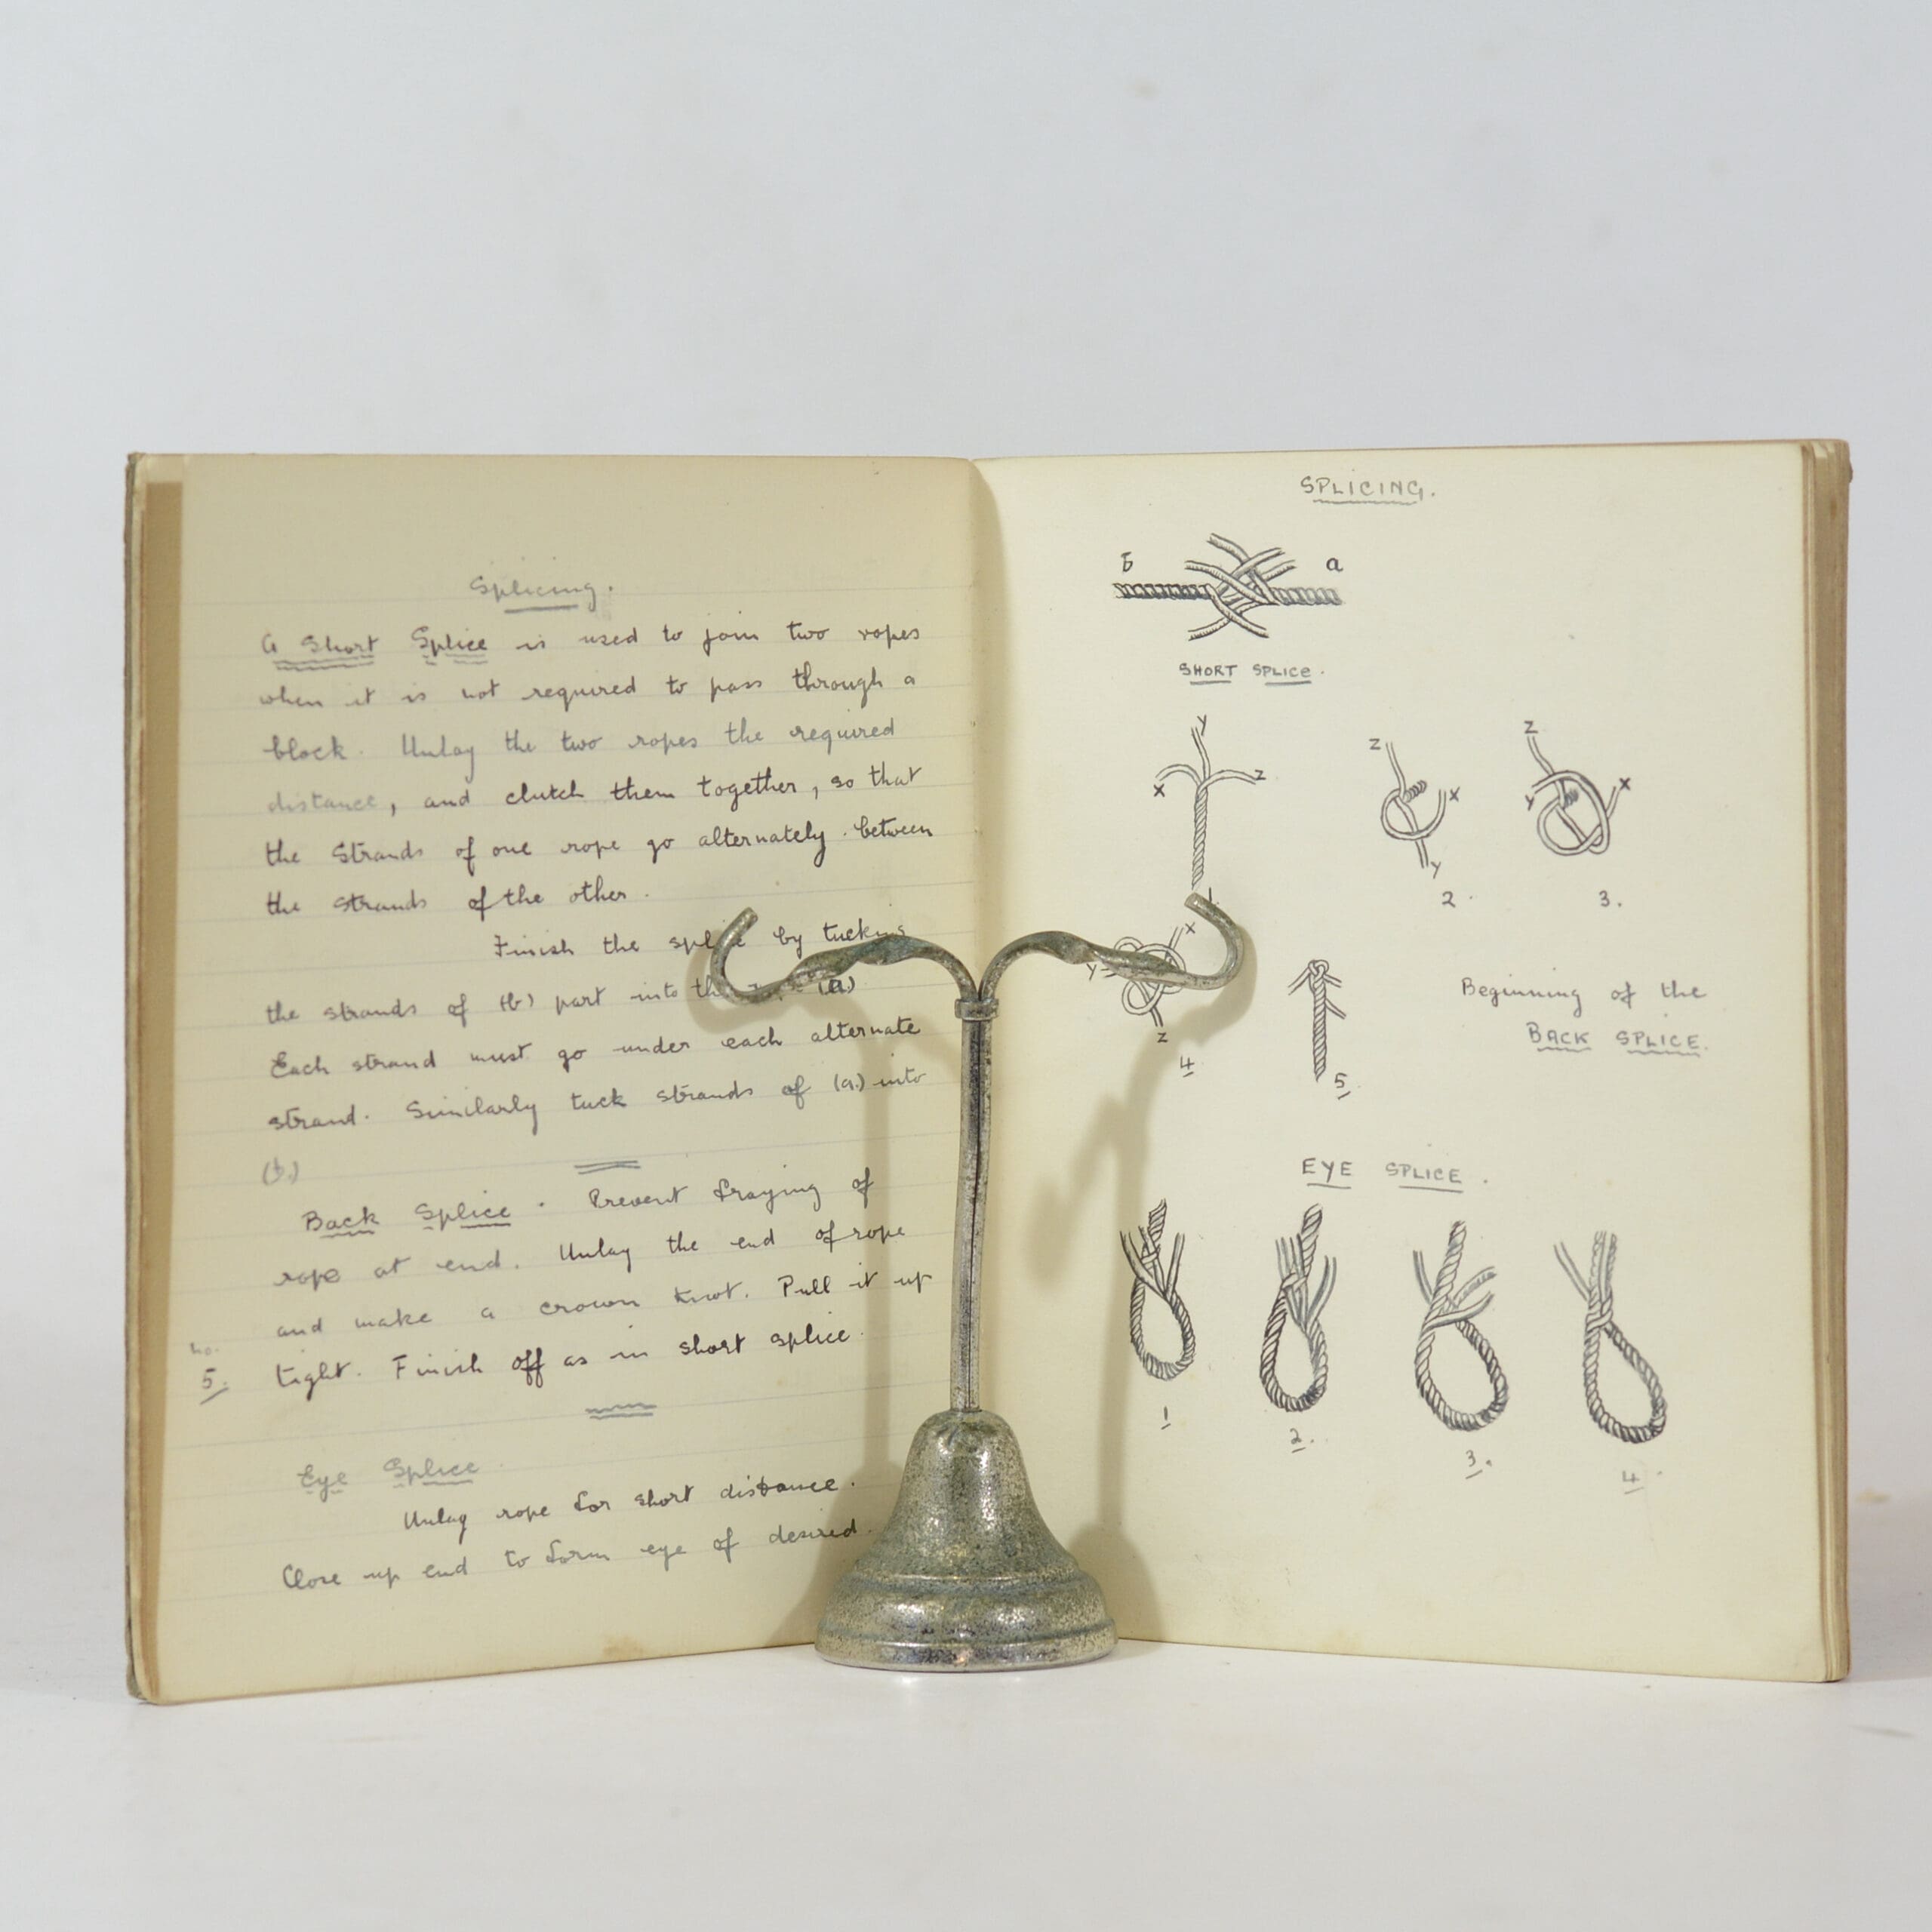 Splicing.
A Short Splice is used to join two ropes
when it is not required to pass through a
block. Unlay the two ropes the required
distance, and clutch them together, so that
the strands of one rope go alternately between
the strands of the other.
Finish the splice by tucking
the strands of (b) part into the (a.)
Each strand must go under each alternate
strand. Similarly tuck strands of (a.) into
(b.)
Back Splice. Prevent fraying of
rope at end. Unlay the end of rope
and make a crown knot. Pull it up
no.
5. tight. Finish off as in short splice.
Eye Splice.
Unlay rope for short distance.
Close up end to form eye of desired.
SPLICING.
b a
SHORT SPLICE.
Y
X Z
Z X Y
2.
Z Y X
3.
X Y Z
4
5.
Beginning of the
BACK SPLICE.
EYE SPLICE.
1
2.
3.
4.